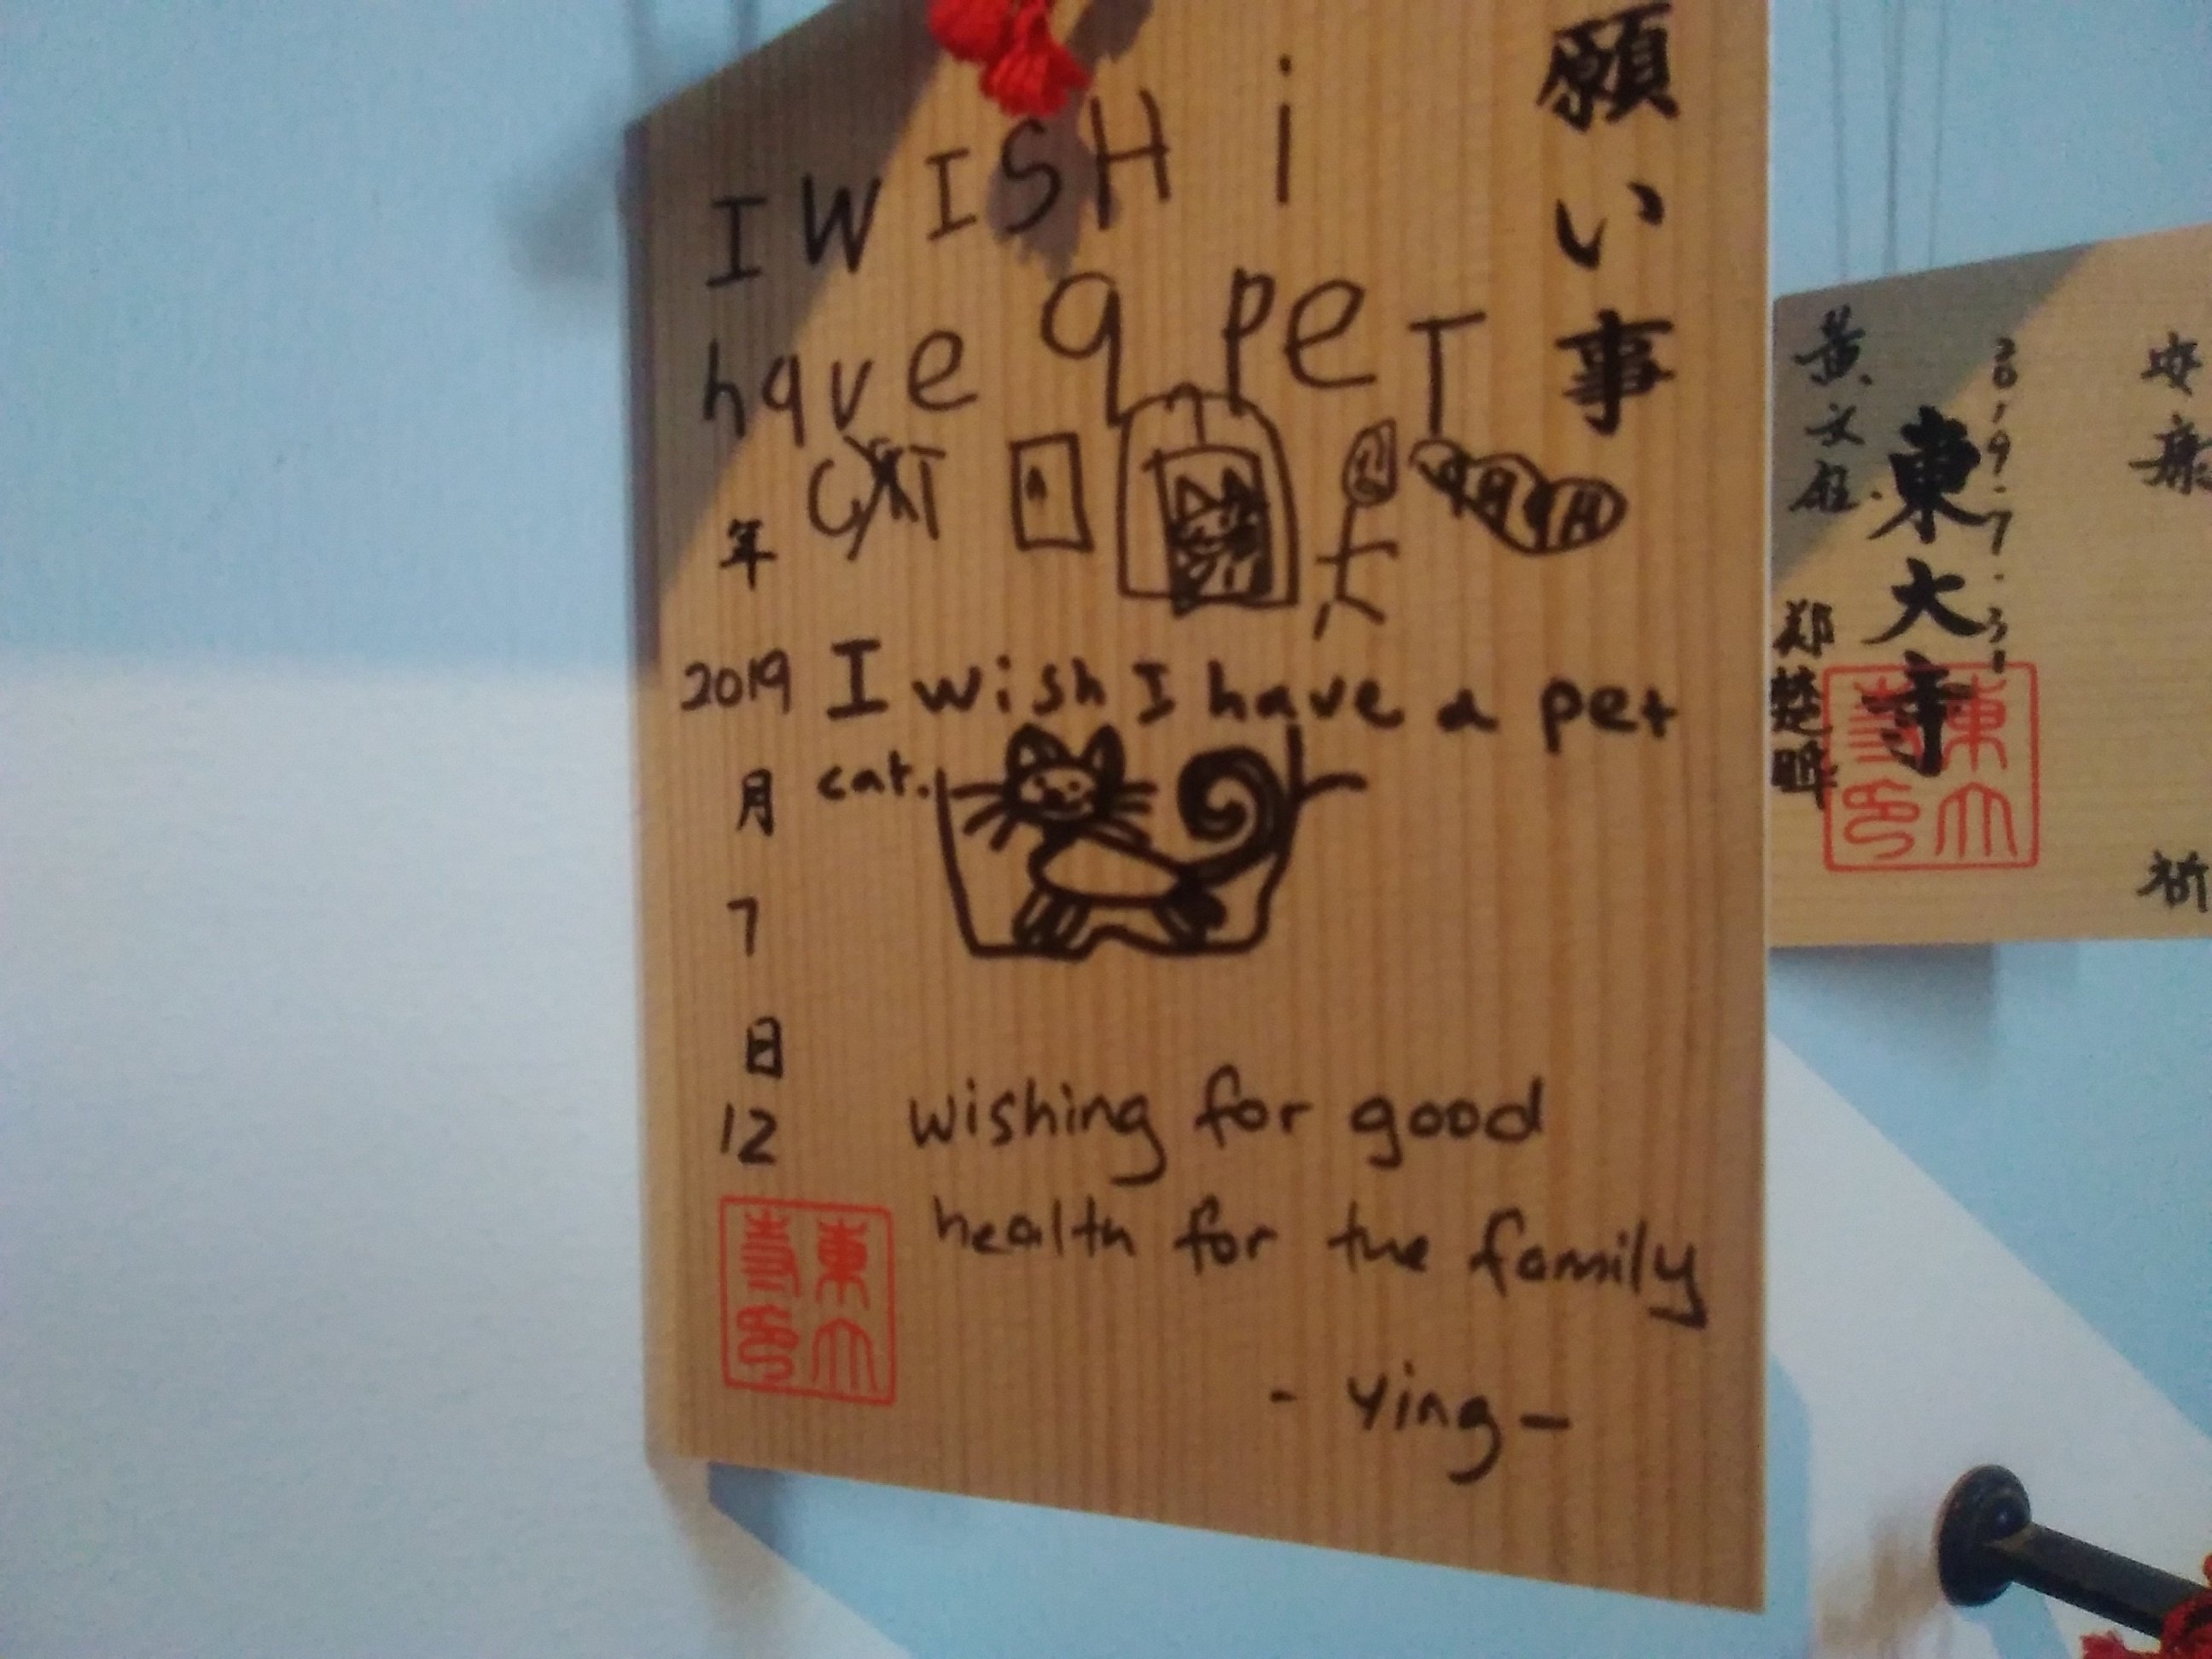 願い事
I WISH i
have a peT
CAT
年
2019
I wish I have a pet
cat.
月
7
日
12
wishing for good
health for the family
- Ying -
東大寺印
安康
祈
2019.7.31
東大寺
黄文
郑楚晖
東大寺印